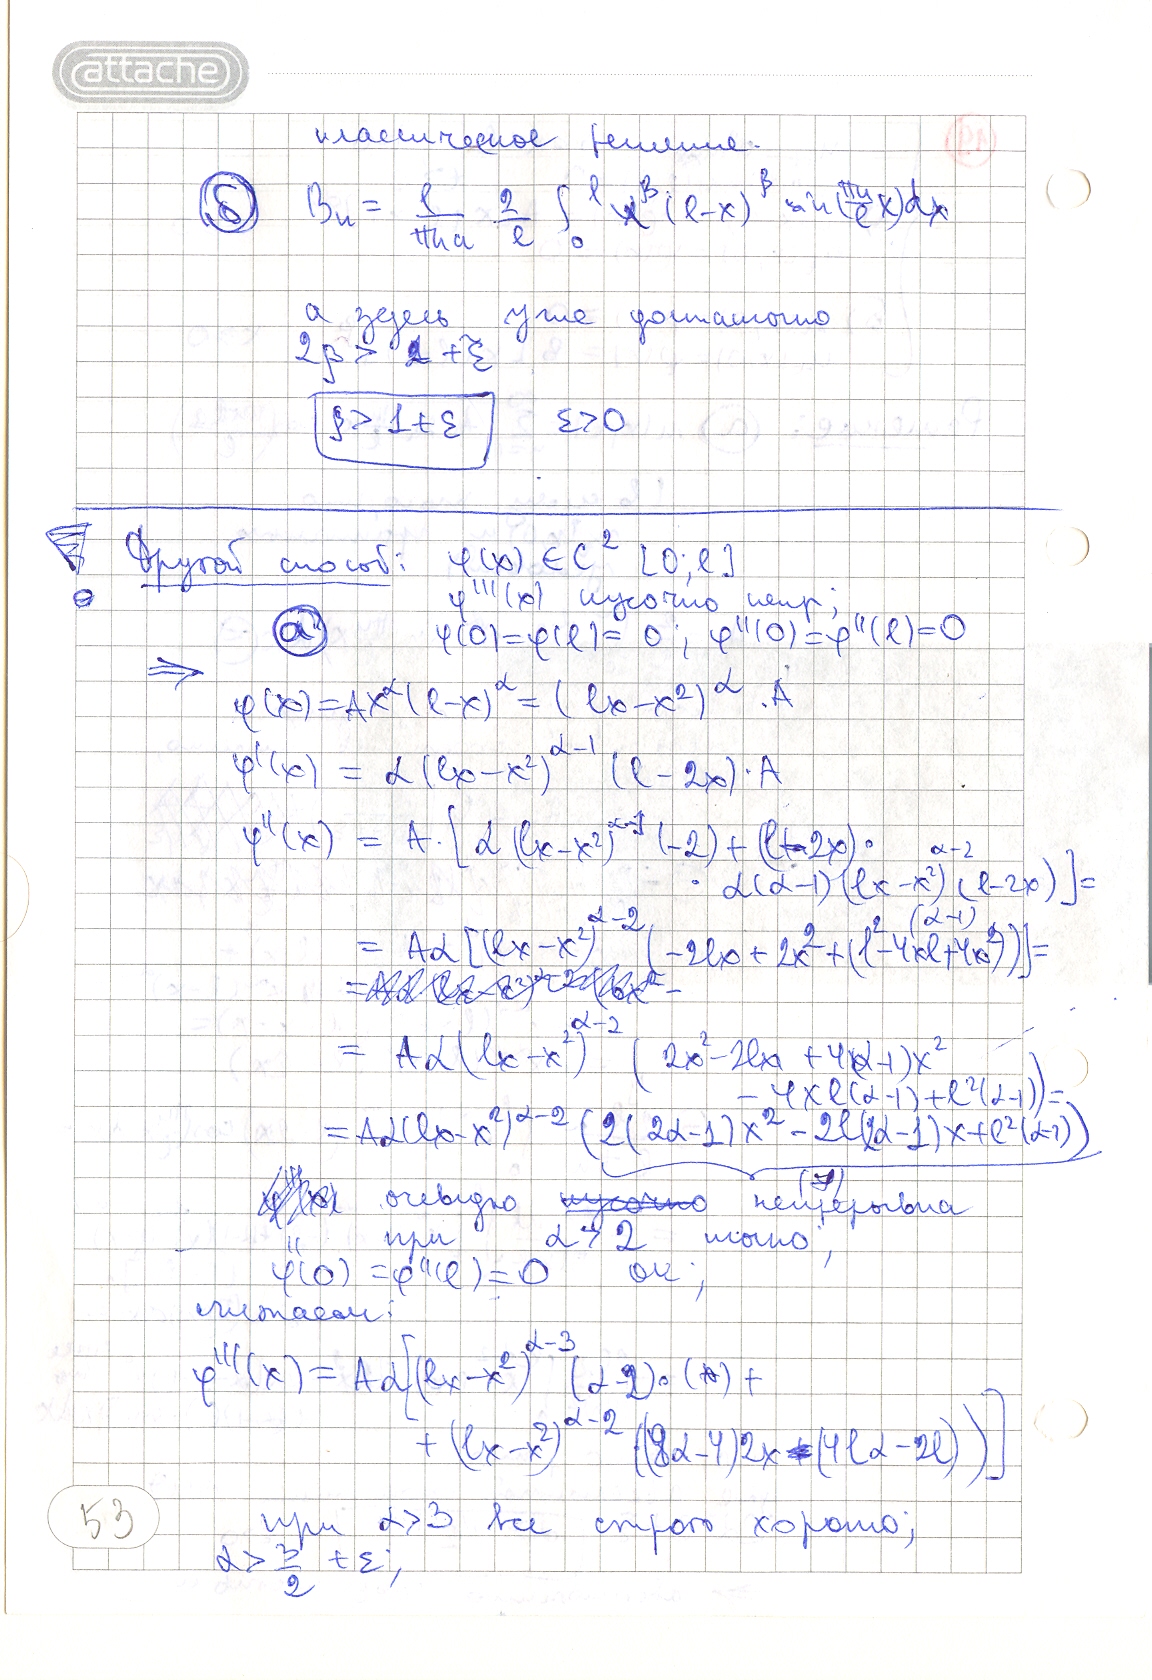 attache
классическое решение.
(б) Bₙ = l/(πna) 2/l ∫₀ˡ x^β (l-x)^β sin(πn/l x)dx
а здесь уже достаточно
2β > 2 + ξ
β > 1 + ε ε>0
Другой способ: φ(x) ∈ C² [0; l]
φ'''(x) кусочно непр;
(а) φ(0)=φ(l)= 0 ; φ''(0)=φ''(l)=0
⇒
φ(x)=Ax^α(l-x)^α = (lx-x²)^α · A
φ'(x) = α(lx-x²)^(α-1) (l-2x)·A
φ''(x) = A·[α(lx-x²)^(α-1) (-2) + (l-2x)·
· α(α-1)(lx-x²)^(α-2) (l-2x)]=
= Aα[(lx-x²)^(α-2) (-2lx + 2x² + (α-1)(l²-4xl+4x²))]=
= Aα(lx-x²)^(α-2) (2x²-2lx + 4(α-1)x²
- 4xl(α-1)+l²(α-1))=
= Aα(lx-x²)^(α-2) (2(2α-1)x² - 2l(2α-1)x+l²(α-1))
очевидно непрерывна
при α>2 точно;
φ''(0) = φ''(l)=0 ок;
считаем:
φ'''(x) = Aα[(lx-x²)^(α-3) (α-2)·(*) +
+ (lx-x²)^(α-2) ((8α-4)2x-(4lα-2l))]
при α>3 все строго хорошо;
53
α> 3/2 + ε;